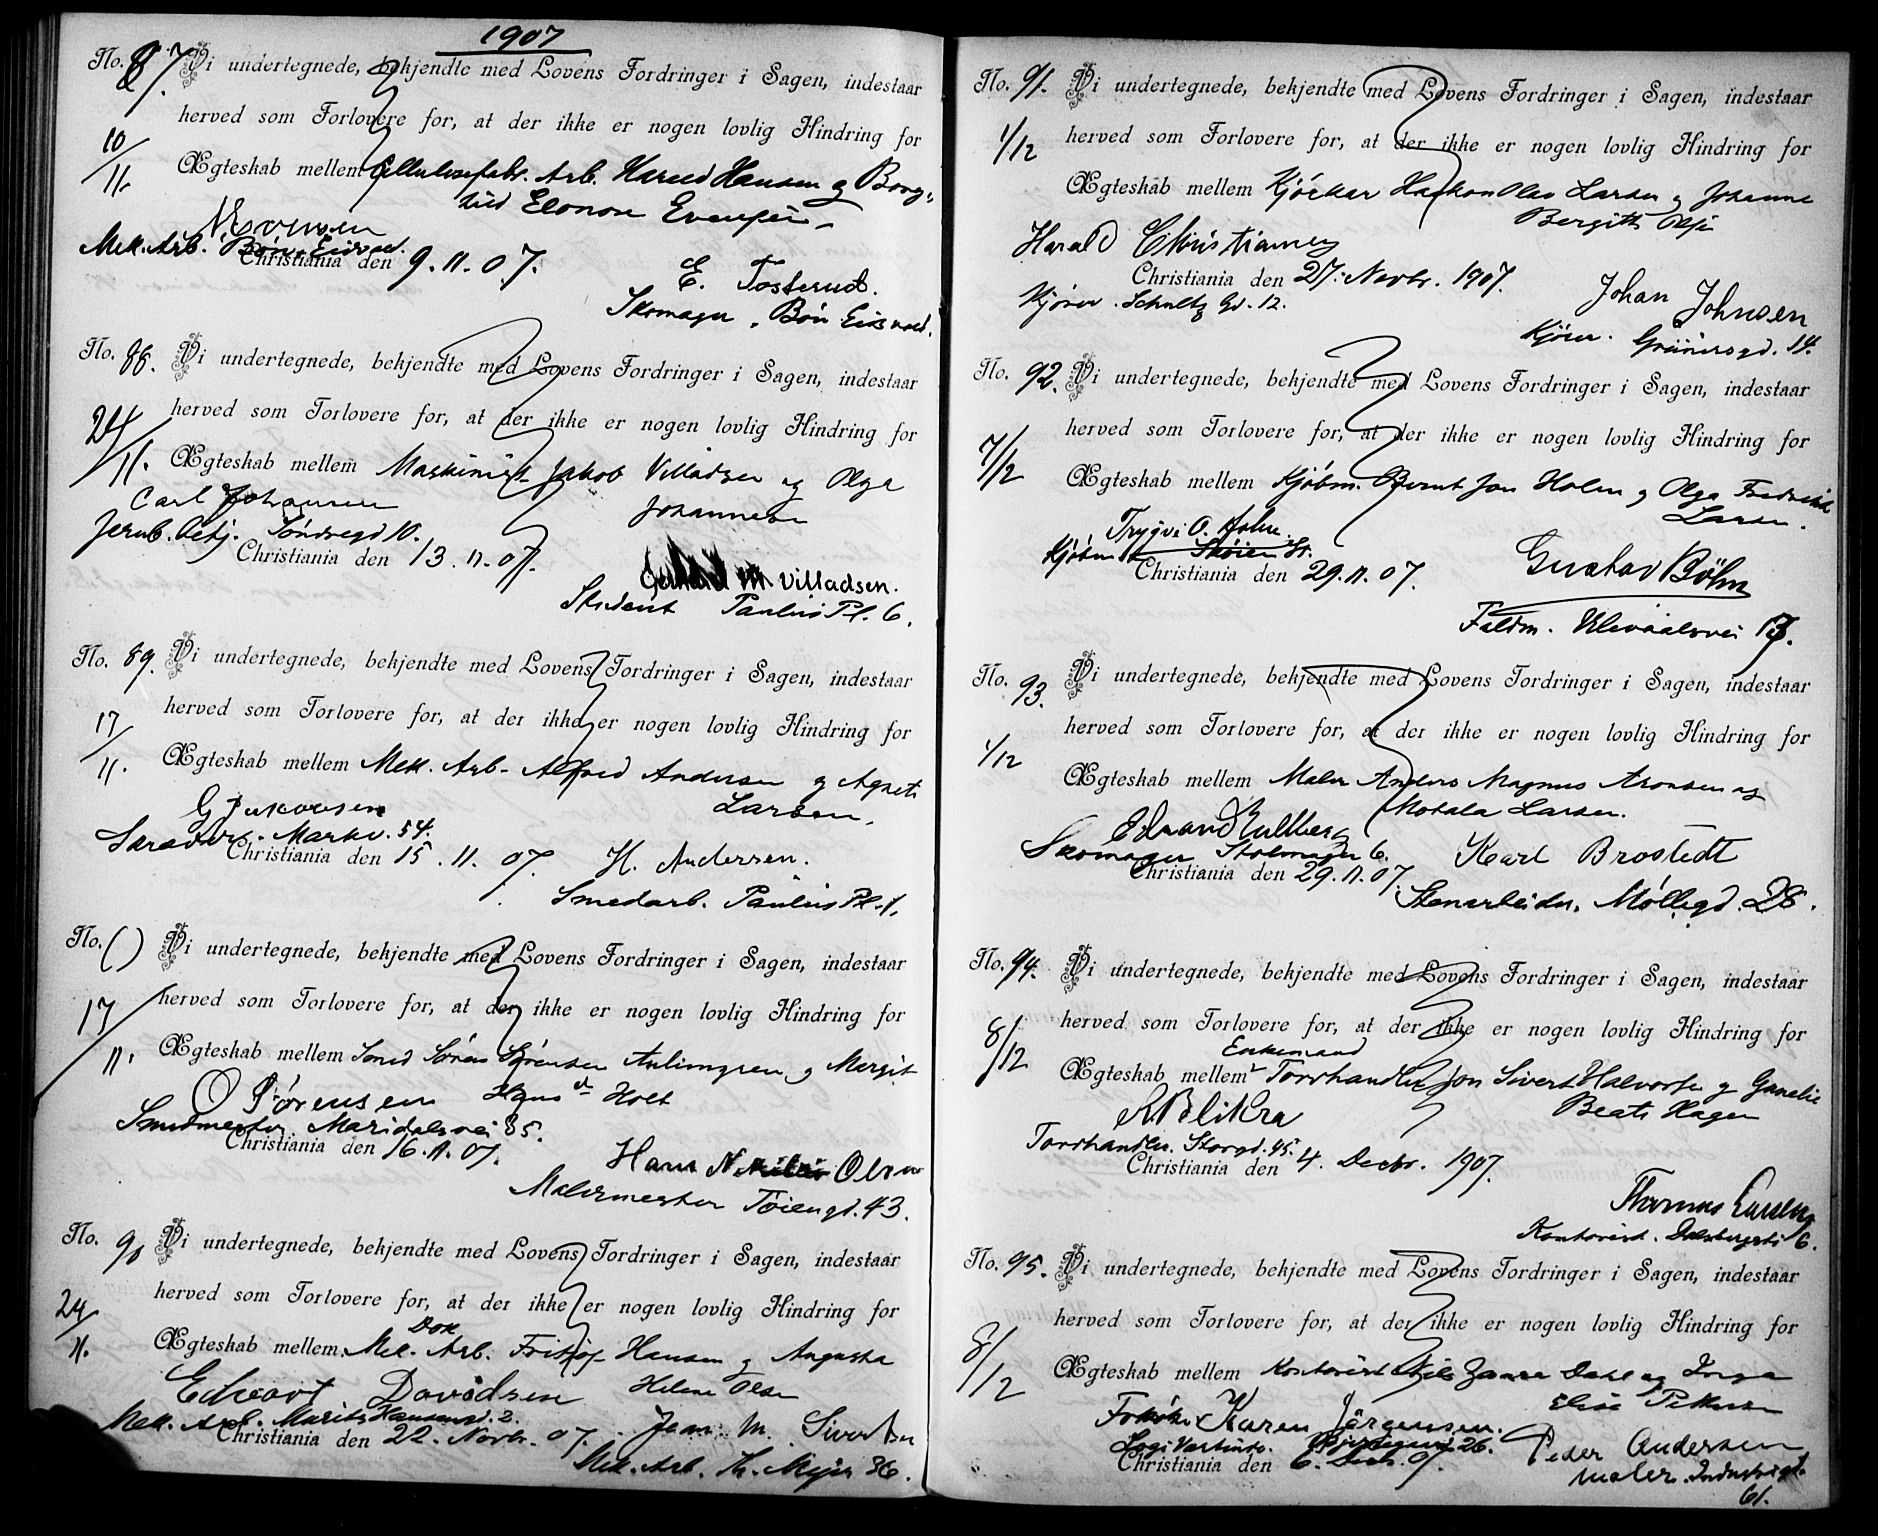 1907
No. 87. Vi undertegnede, bekjendte med Lovens Fordringer i Sagen, indestaar
herved som Forlovere for, at der ikke er nogen lovlig Hindring for
10/11.
Ægteskab mellem Cellulosefabr. Arb. Harald Hansen og Borg-
hild Elonore Evensen
N Evensen
Mek. Arb. Bøn. Eidsvold.
Christiania den 9.11.07.
E. Tosterud.
Skomager, Bøn Eidsvold.
No. 88. Vi undertegnede, bekjendte med Lovens Fordringer i Sagen, indestaar
herved som Forlovere for, at der ikke er nogen lovlig Hindring for
24/11.
Ægteskab mellem Maskinist Jakob Villadsen og Olga
Johannesen
Carl Johansen
Jernb. betj. Søndregd 10.
Christiania den 13.11.07.
M Villadsen.
Student Paulus Pl. 6.
No. 89. Vi undertegnede, bekjendte med Lovens Fordringer i Sagen, indestaar
herved som Forlovere for, at der ikke er nogen lovlig Hindring for
17/11.
Ægteskab mellem Mek. Arb. Alfred Andersen og Agnete
Larsen.
G Jakobsen
Markv. 54.
Christiania den 15.11.07.
H. Andersen.
Smedarb. Paulus Pl. 1.
No. ( ) Vi undertegnede, bekjendte med Lovens Fordringer i Sagen, indestaar
herved som Forlovere for, at der ikke er nogen lovlig Hindring for
17/11.
Ægteskab mellem Smed Søren Sørensen og Margit
Holt
O Sørensen
Smedmester Maridalsvei 85.
Christiania den 16.11.07.
Hans Olsen
Malermester Tøiengd. 43.
No. 90 Vi undertegnede, bekjendte med Lovens Fordringer i Sagen, indestaar
herved som Forlovere for, at der ikke er nogen lovlig Hindring for
24/11.
Ægteskab mellem Mek. Arb. Fritjof Hansen og Augusta
Helene Olsen
Edvart Davidsen
Mek. Arb. Marits Hansensgd. 2.
Christiania den 22. Novbr. 07.
Jens M. Sivertsen
Mek. Arb. Th. Mejer 36.
No. 91. Vi undertegnede, bekjendte med Lovens Fordringer i Sagen, indestaar
herved som Forlovere for, at der ikke er nogen lovlig Hindring for
1/12
Ægteskab mellem Kjørekar Haakon Olav Larsen og Johanne
Bergitte
Harald Christiansen
Kjører. Schultz Gd. 12.
Christiania den 27. Novbr. 1907.
Johan Johnsen
Kjører. Grünersgd. 14.
No. 92. Vi undertegnede, bekjendte med Lovens Fordringer i Sagen, indestaar
herved som Forlovere for, at der ikke er nogen lovlig Hindring for
7/12
Ægteskab mellem Kjøbm. Bernt Jon Holm og Olga Fredrikke
Larsen.
Trygve O. Holm.
Kjøbm Skøien St.
Christiania den 29.11.07.
Gustav Böhn
Feldm. Ulevaalsvei 13.
No. 93. Vi undertegnede, bekjendte med Lovens Fordringer i Sagen, indestaar
herved som Forlovere for, at der ikke er nogen lovlig Hindring for
1/12
Ægteskab mellem Maler Anders Magnus Aronsen og
Motala Larsen.
Edvard Kullberg
Skomager Stolmager 6.
Christiania den 29.11.07.
Karl Brostedt
Stenarbeider. Møllegd. 28.
No. 94. Vi undertegnede, bekjendte med Lovens Fordringer i Sagen, indestaar
herved som Forlovere for, at der ikke er nogen lovlig Hindring for
8/12
Enkemand
Ægteskab mellem Torvhandler Jon Sivert Halvorsen og Gunelie
Beate Hagen
Blikra
Torvhandler. Storgd. 45.
Christiania den 4. Decbr. 1907.
Thomas Larsen
Kontorist. Dalsbergsti 6.
No. 95. Vi undertegnede, bekjendte med Lovens Fordringer i Sagen, indestaar
herved som Forlovere for, at der ikke er nogen lovlig Hindring for
8/12
Ægteskab mellem Kontorist Dahl og Inga
Elise Pettersen
Frøken Karen Jörgensen.
Logivertinde. 26.
Christiania den 6. Decb. 07.
Peder Andersen
Maler. Industrigd.
61.